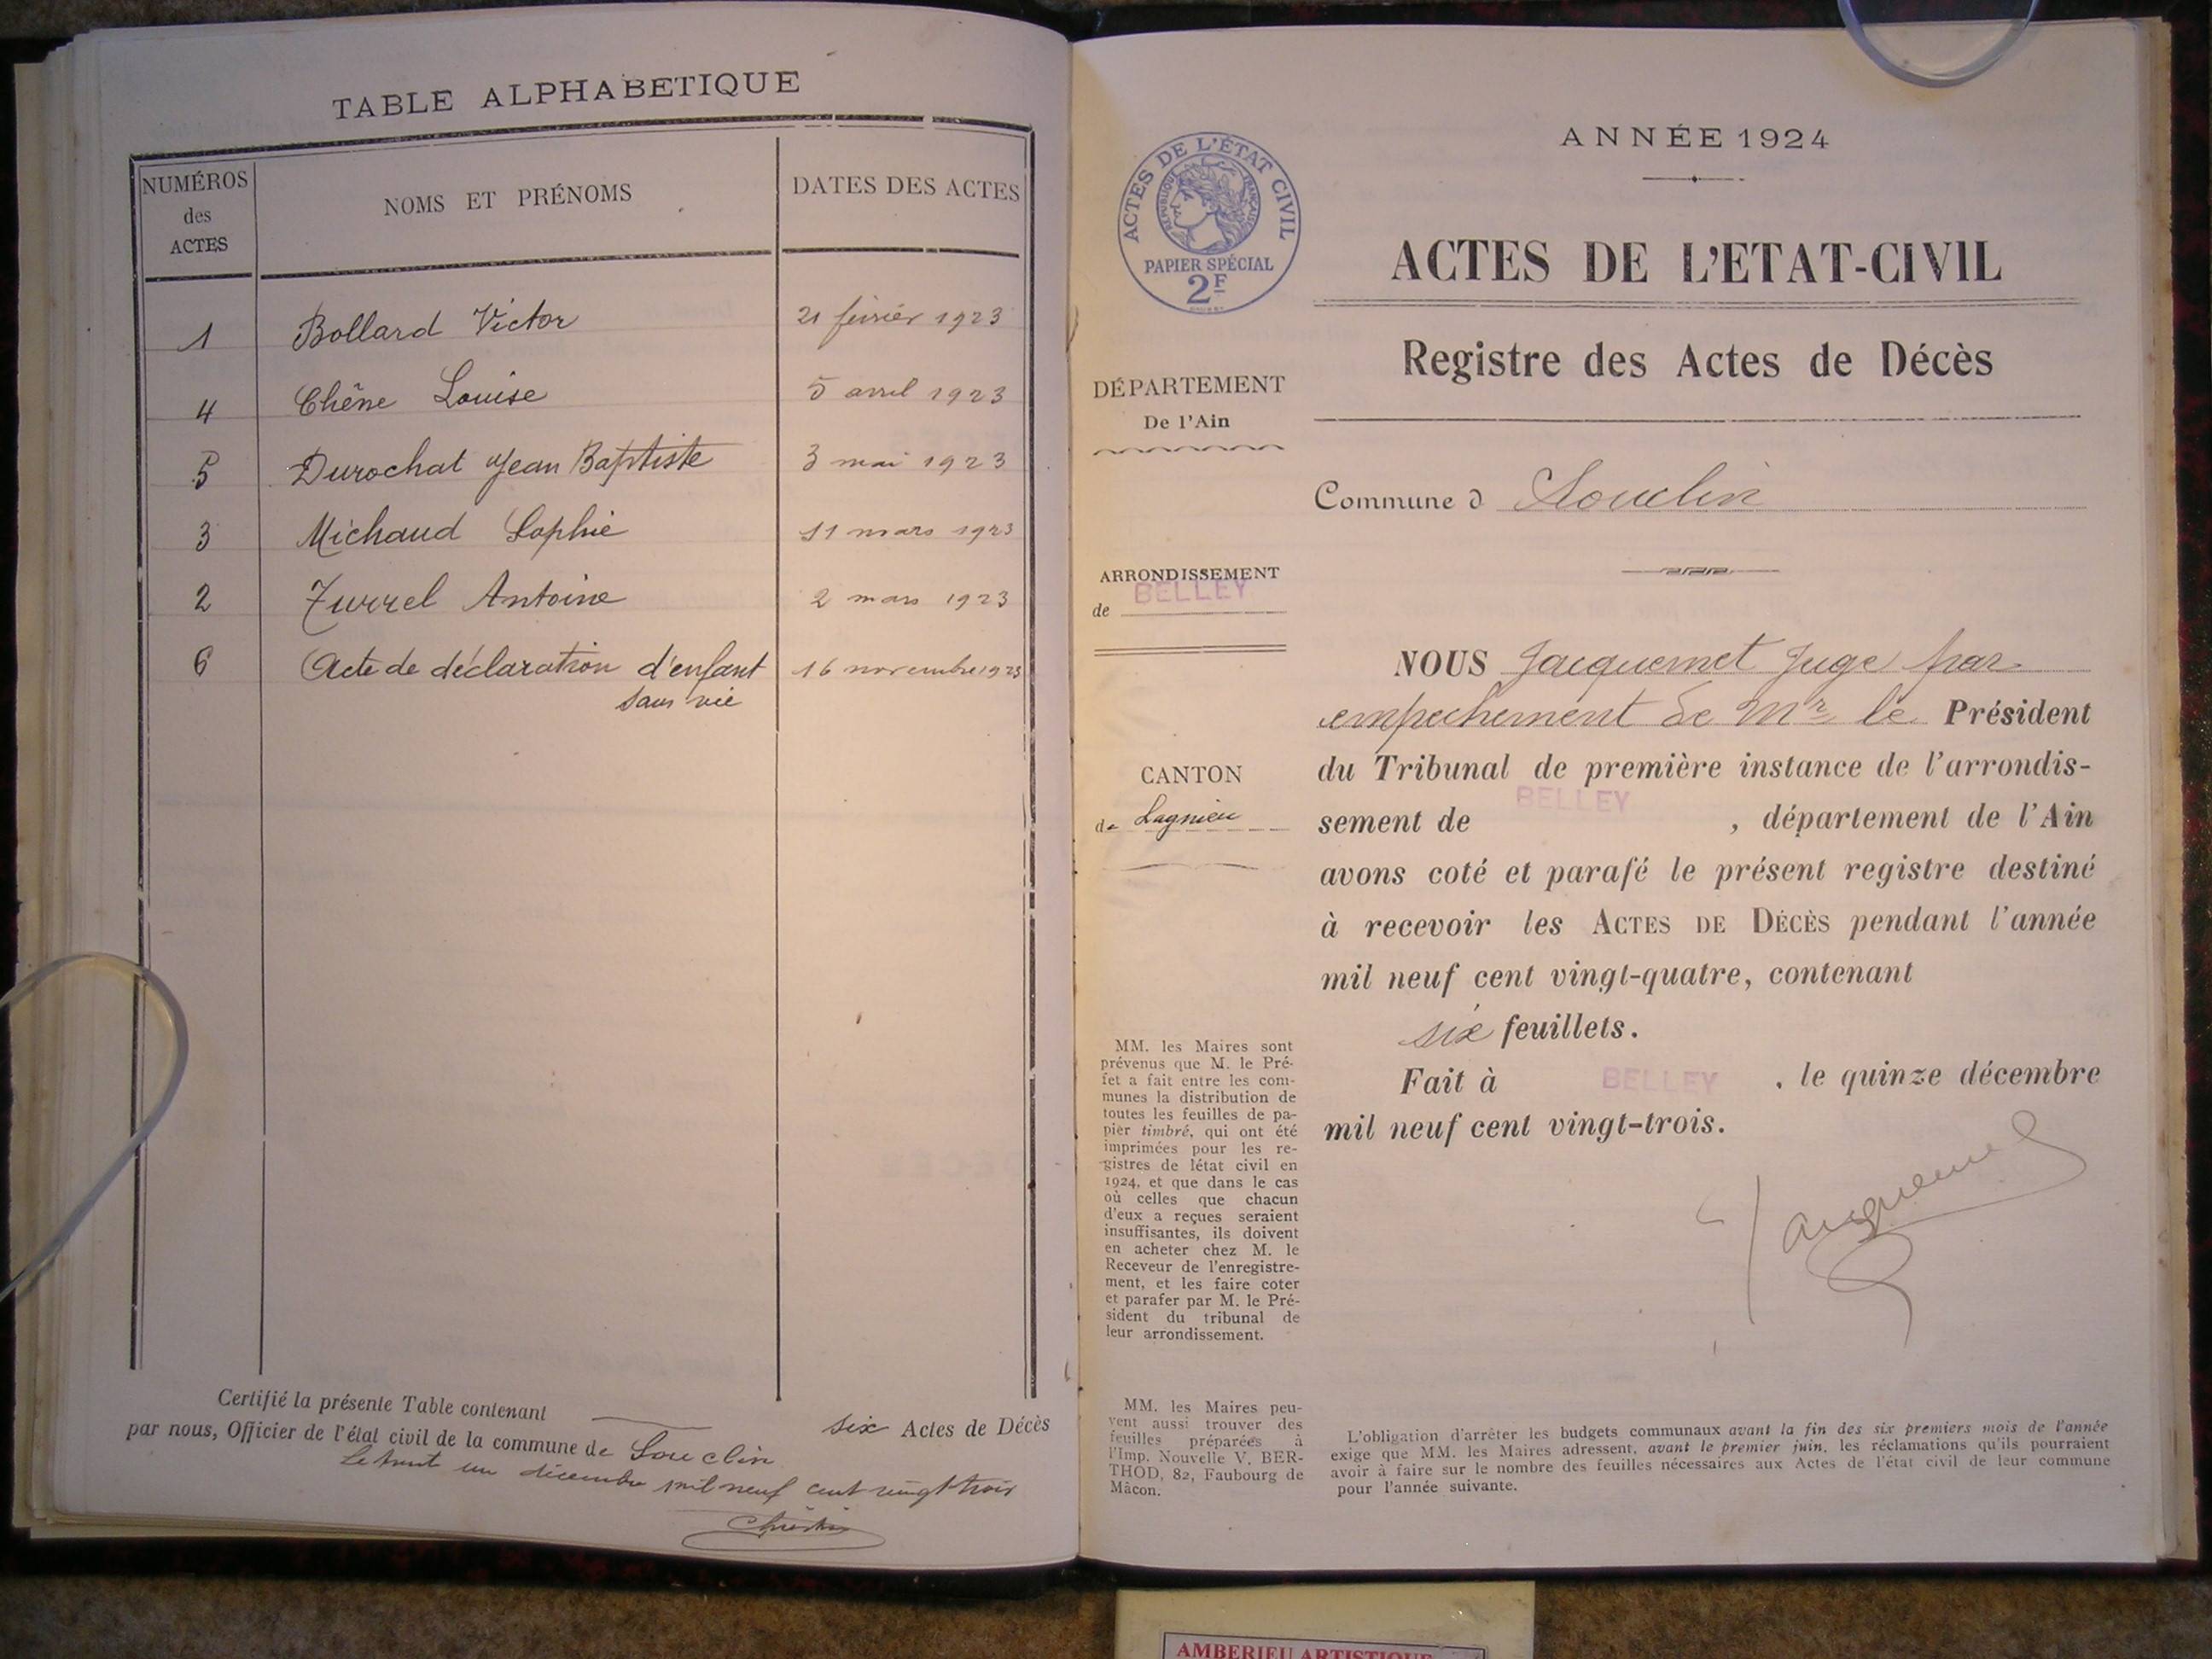 TABLE ALPHABETIQUE
NUMÉROS des ACTES
NOMS ET PRÉNOMS
DATES DES ACTES
1 Bollard Victor 21 février 1923
4 Chêne Louise 5 avril 1923
5 Durochat Jean Baptiste 3 mai 1923
3 Michaud Sophie 11 mars 1923
2 Turrel Antoine 2 mars 1923
6 Acte de déclaration d'enfant 16 novembre 1923
sans vie
Certifié la présente Table contenant six Actes de Décès
par nous, Officier de l'état civil de la commune de Souclin
Le trente un décembre mil neuf cent vingt trois
ACTES DE L'ÉTAT CIVIL
RÉPUBLIQUE FRANÇAISE
PAPIER SPÉCIAL
2F
DÉPARTEMENT
De l'Ain
ARRONDISSEMENT
de BELLEY
CANTON
de Lagnieu
MM. les Maires sont
prévenus que M. le Pré-
fet a fait entre les com-
munes la distribution de
toutes les feuilles de pa-
pier timbré, qui ont été
imprimées pour les re-
gistres de létat civil en
1924, et que dans le cas
où celles que chacun
d'eux a reçues seraient
insuffisantes, ils doivent
en acheter chez M. le
Receveur de l'enregistre-
ment, et les faire coter
et parafer par M. le Pré-
sident du tribunal de
leur arrondissement.
MM. les Maires peu-
vent aussi trouver des
feuilles préparées à
l'Imp. Nouvelle V. BER-
THOD, 82, Faubourg de
Mâcon.
ANNÉE 1924
ACTES DE L'ETAT-CIVIL
Registre des Actes de Décès
Commune d Souclin
NOUS Jacquemet Juge par
empechement de Mr le Président
du Tribunal de première instance de l'arrondis-
sement de BELLEY, département de l'Ain
avons coté et parafé le présent registre destiné
à recevoir les ACTES DE DÉCÈS pendant l'année
mil neuf cent vingt-quatre, contenant
six feuillets.
Fait à BELLEY, le quinze décembre
mil neuf cent vingt-trois.
Jacquemet
L'obligation d'arrêter les budgets communaux avant la fin des six premiers mois de l'année
exige que MM. les Maires adressent, avant le premier juin, les réclamations qu'ils pourraient
avoir à faire sur le nombre des feuilles nécessaires aux Actes de l'état civil de leur commune
pour l'année suivante.
AMBERIEU ARTISTIQUE